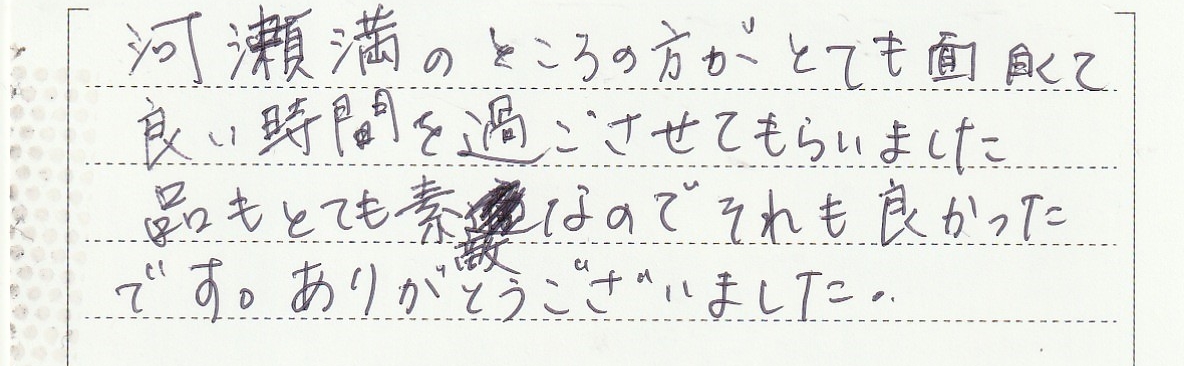 河瀬満のところの方がとても面良くて
良い時間を過ごさせてもらいました
品もとても素敵なのでそれも良かった
です。ありがとうございました。